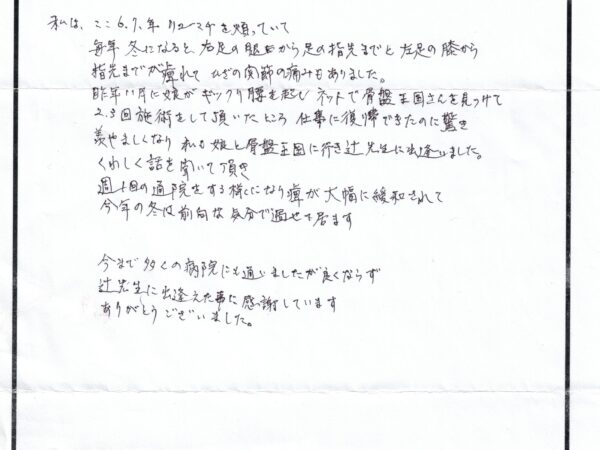 私は、ここ6.7.年 リューマチを煩っていて
毎年 冬になると、右足の腿から足の指先までと左足の膝から
指先までが痺れて ひざの関節の痛みもありました。
昨年11月に娘がギックリ腰を起し ネットで骨盤王国さんを見つけて
2.3回施術をして頂いたところ 仕事に復帰できたのに驚き
羨やましくなり 私も娘と骨盤王国に行き辻先生に出逢いました。
くわしく話を聞いて頂き
週1回の通院をする様になり痺が大幅に緩和されて
今年の冬は前向な気分で過せて居ます
今まで多くの病院にも通いましたが良くならず
辻先生に出逢えた事に感謝しています
ありがとうございました。